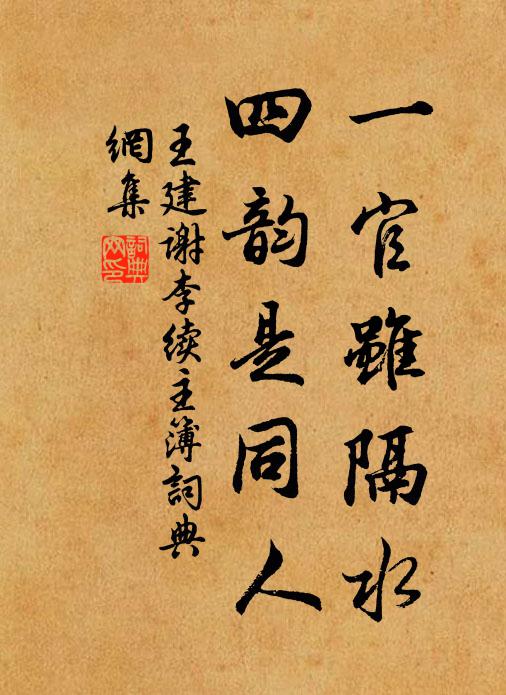 一官雖隔水
四韵是同人
王建谢李续主簿詞典
網集
詞典
网印